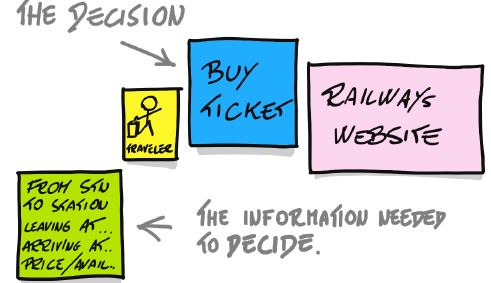 THE DECISION
BUY
TICKET
RAILWAYS
WEBSITE
TRAVELER
FROM STN
TO STATION
LEAVING AT...
ARRIVING AT..
PRICE/AVAIL..
THE INFORMATION NEEDED
TO DECIDE.